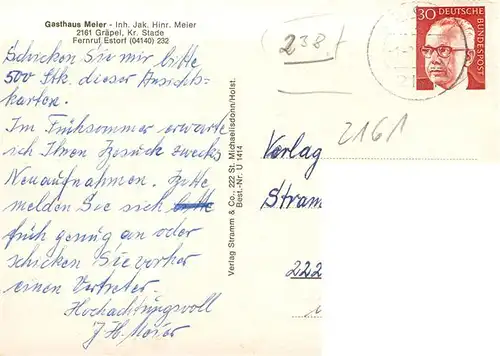 Gasthaus Meier - Inh. Jak. Hinr. Meier
2161 Gräpel, Kr. Stade
Fernruf Estorf (04140) 232
Schicken Sie mir bitte
500 Stk. dieser Ansichts-
karten.
Im Frühsommer erwarte
ich Ihren Besuch zwecks
Neuaufnahmen. Bitte
melden Sie sich bitte
früh genug an oder
schicken Sie vorher
einen Vertreter.
Hochachtungsvoll
J. H. Meier
Verlag Stramm & Co.; 222 St. Michaelisdonn/Holst.
Best.-Nr. U 1414
238.+
30 DEUTSCHE BUNDESPOST
2161
Verlag
Stram
222